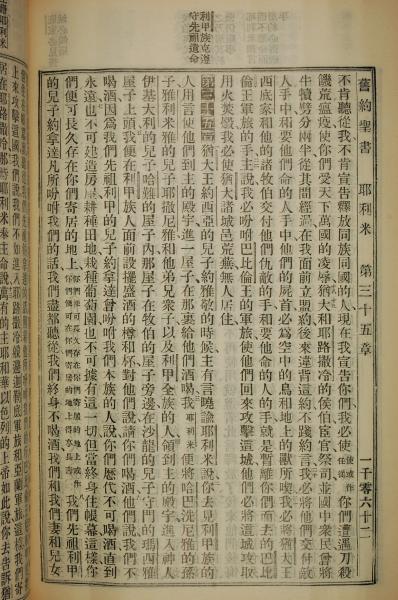 舊約聖書 耶利米 第三十五章 一千零六十二
不肯聽從我、不肯宣告釋放同族同國的人、現在我宣告你們、我必使使或作任憑你們遭遇刀殺
饑荒瘟疫、使你們受天下萬國的凌辱、猶大和耶路撒冷的侯伯臣宰祭司並國中衆民、曾將
牛犢劈分兩半、從其間經過、在我面前立盟約、後來違背這約、不踐約言、我必將他們交付敵
人手中、和要他們命的人手中、他們的屍首必爲空中的鳥和地上的獸所喫、我必將猶大王
西底家和他的諸牧伯、交付他們仇敵的手、和要他命的人的手、就是暫離你們而去的巴比
倫王軍旅的手、主說、我必吩咐巴比倫王的軍旅、使他們回來攻擊這城、他們必將這城攻取
用火焚燬、我必使猶大諸城邑荒蕪無人居住。
利甲族克遵
守先祖遺命
第三十五章 猶大王約西亞的兒子約雅敬的時候、主有言曉諭耶利米說、你去見利甲族的
人、用言使他們到主的殿、進一屋子、在那裏給他們酒喝、我耶利米便將哈巴洗尼雅的孫
子雅利米雅的兒子耶撒尼雅和他弟兄衆子、以及利甲全族的人、領到主的殿、進入神人
伊基大利的兒子哈難的屋子內、那屋子在牧伯的屋子旁邊、在沙龍的兒子守門的瑪西雅
屋子上頭、我便在利甲族人面前設擺盛酒的樽和杯、對他們說、請你們喝酒、他們說、我們不
喝酒、因爲我們先祖利甲的兒子約拿達曾吩咐我們本族的人說、你們歷代不可喝酒、直到
永遠、也不可建造房屋、耕種田地、栽種葡萄園、也不可據有這一切、但當終身住帳幕、這樣你
們便可長久存在你們寄居的地上、我們先祖利甲
的兒子約拿達、凡所吩咐我們的話、我們盡都聽從、我們終身不喝酒、我們和我們妻和兒女